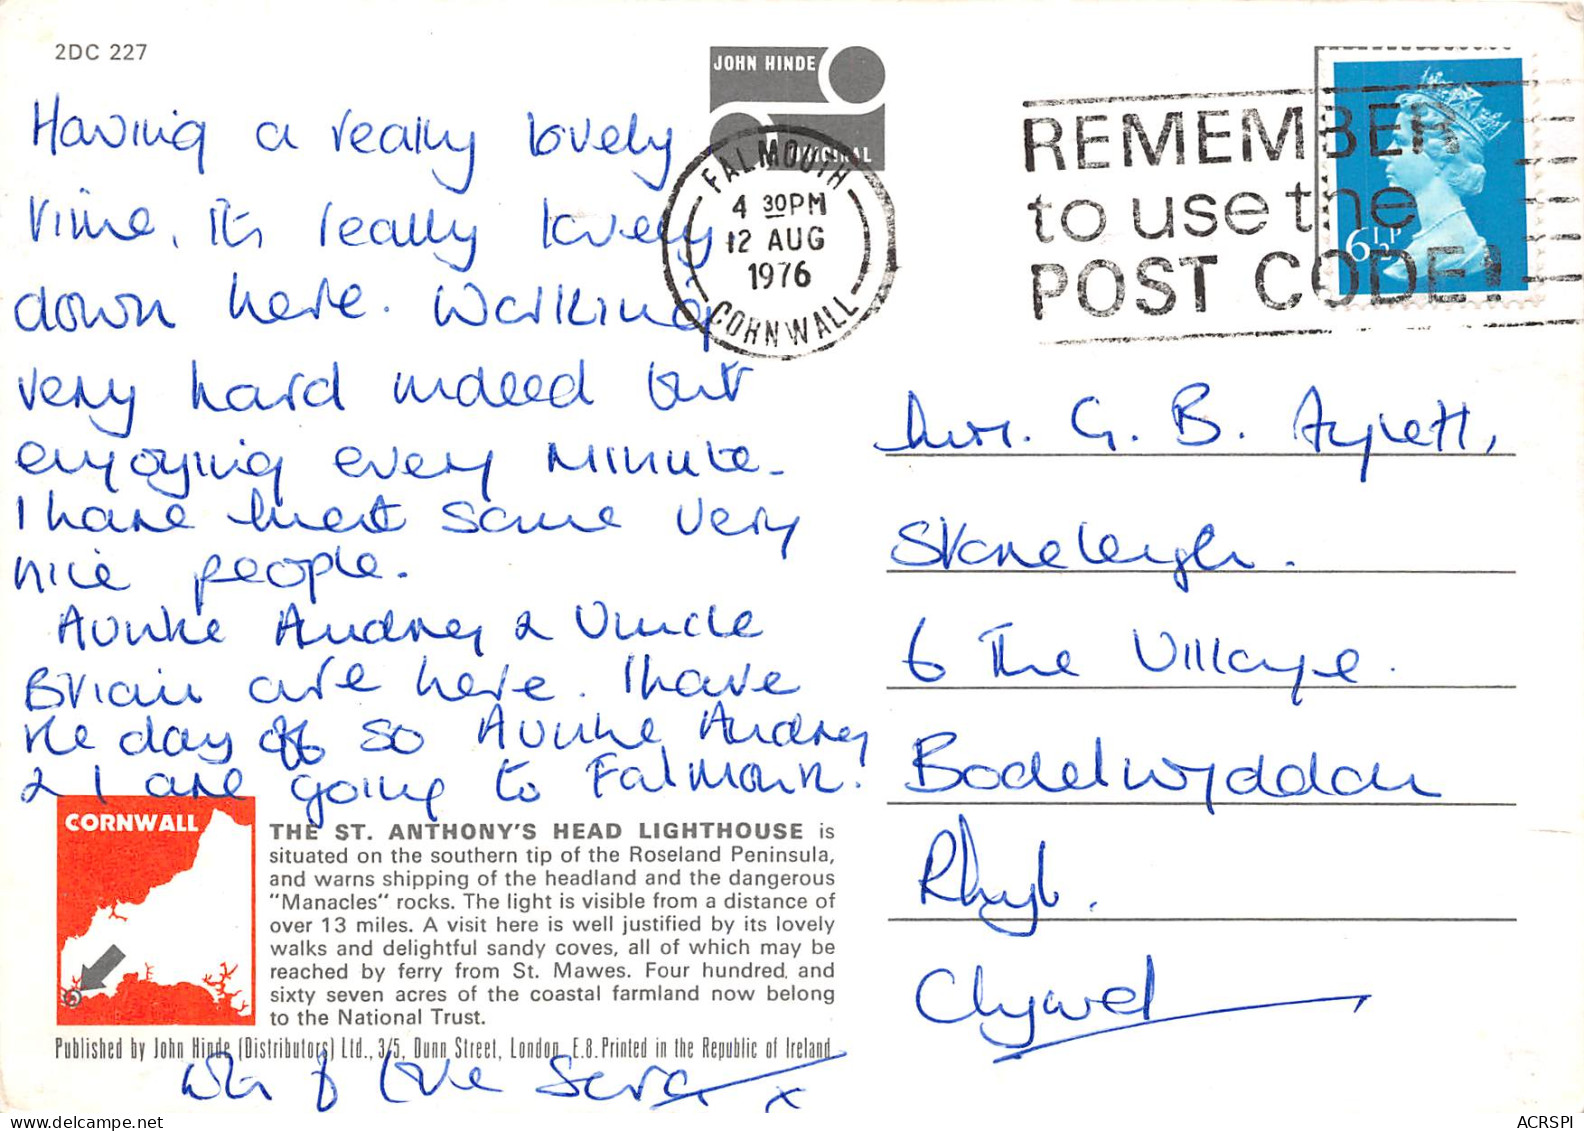 2DC 227
JOHN HINDE
ORIGINAL
FALMOUTH
4 30PM
12 AUG
1976
CORNWALL
REMEMBER
to use the
POST CODE!
6½P
Having a really lovely
time, its really lovely
down here. Walking
very hard indeed but
enjoying every minute.
I have meet some very
nice people.
Auntie Audrey & Uncle
Brian are here. I have
the day off so Auntie Audrey
& I are going to Falmouth.
Mrs. G. B.
Stoneleigh.
6 The Village.
Bodelwyddan
Rhyl.
Clywd
CORNWALL
THE ST. ANTHONY'S HEAD LIGHTHOUSE is
situated on the southern tip of the Roseland Peninsula,
and warns shipping of the headland and the dangerous
"Manacles" rocks. The light is visible from a distance of
over 13 miles. A visit here is well justified by its lovely
walks and delightful sandy coves, all of which may be
reached by ferry from St. Mawes. Four hundred, and
sixty seven acres of the coastal farmland now belong
to the National Trust.
Published by John Hinde (Distributors) Ltd., 3/5, Dunn Street, London, E.8. Printed in the Republic of Ireland
of love Sara x
delcampe.net
ACRSPI